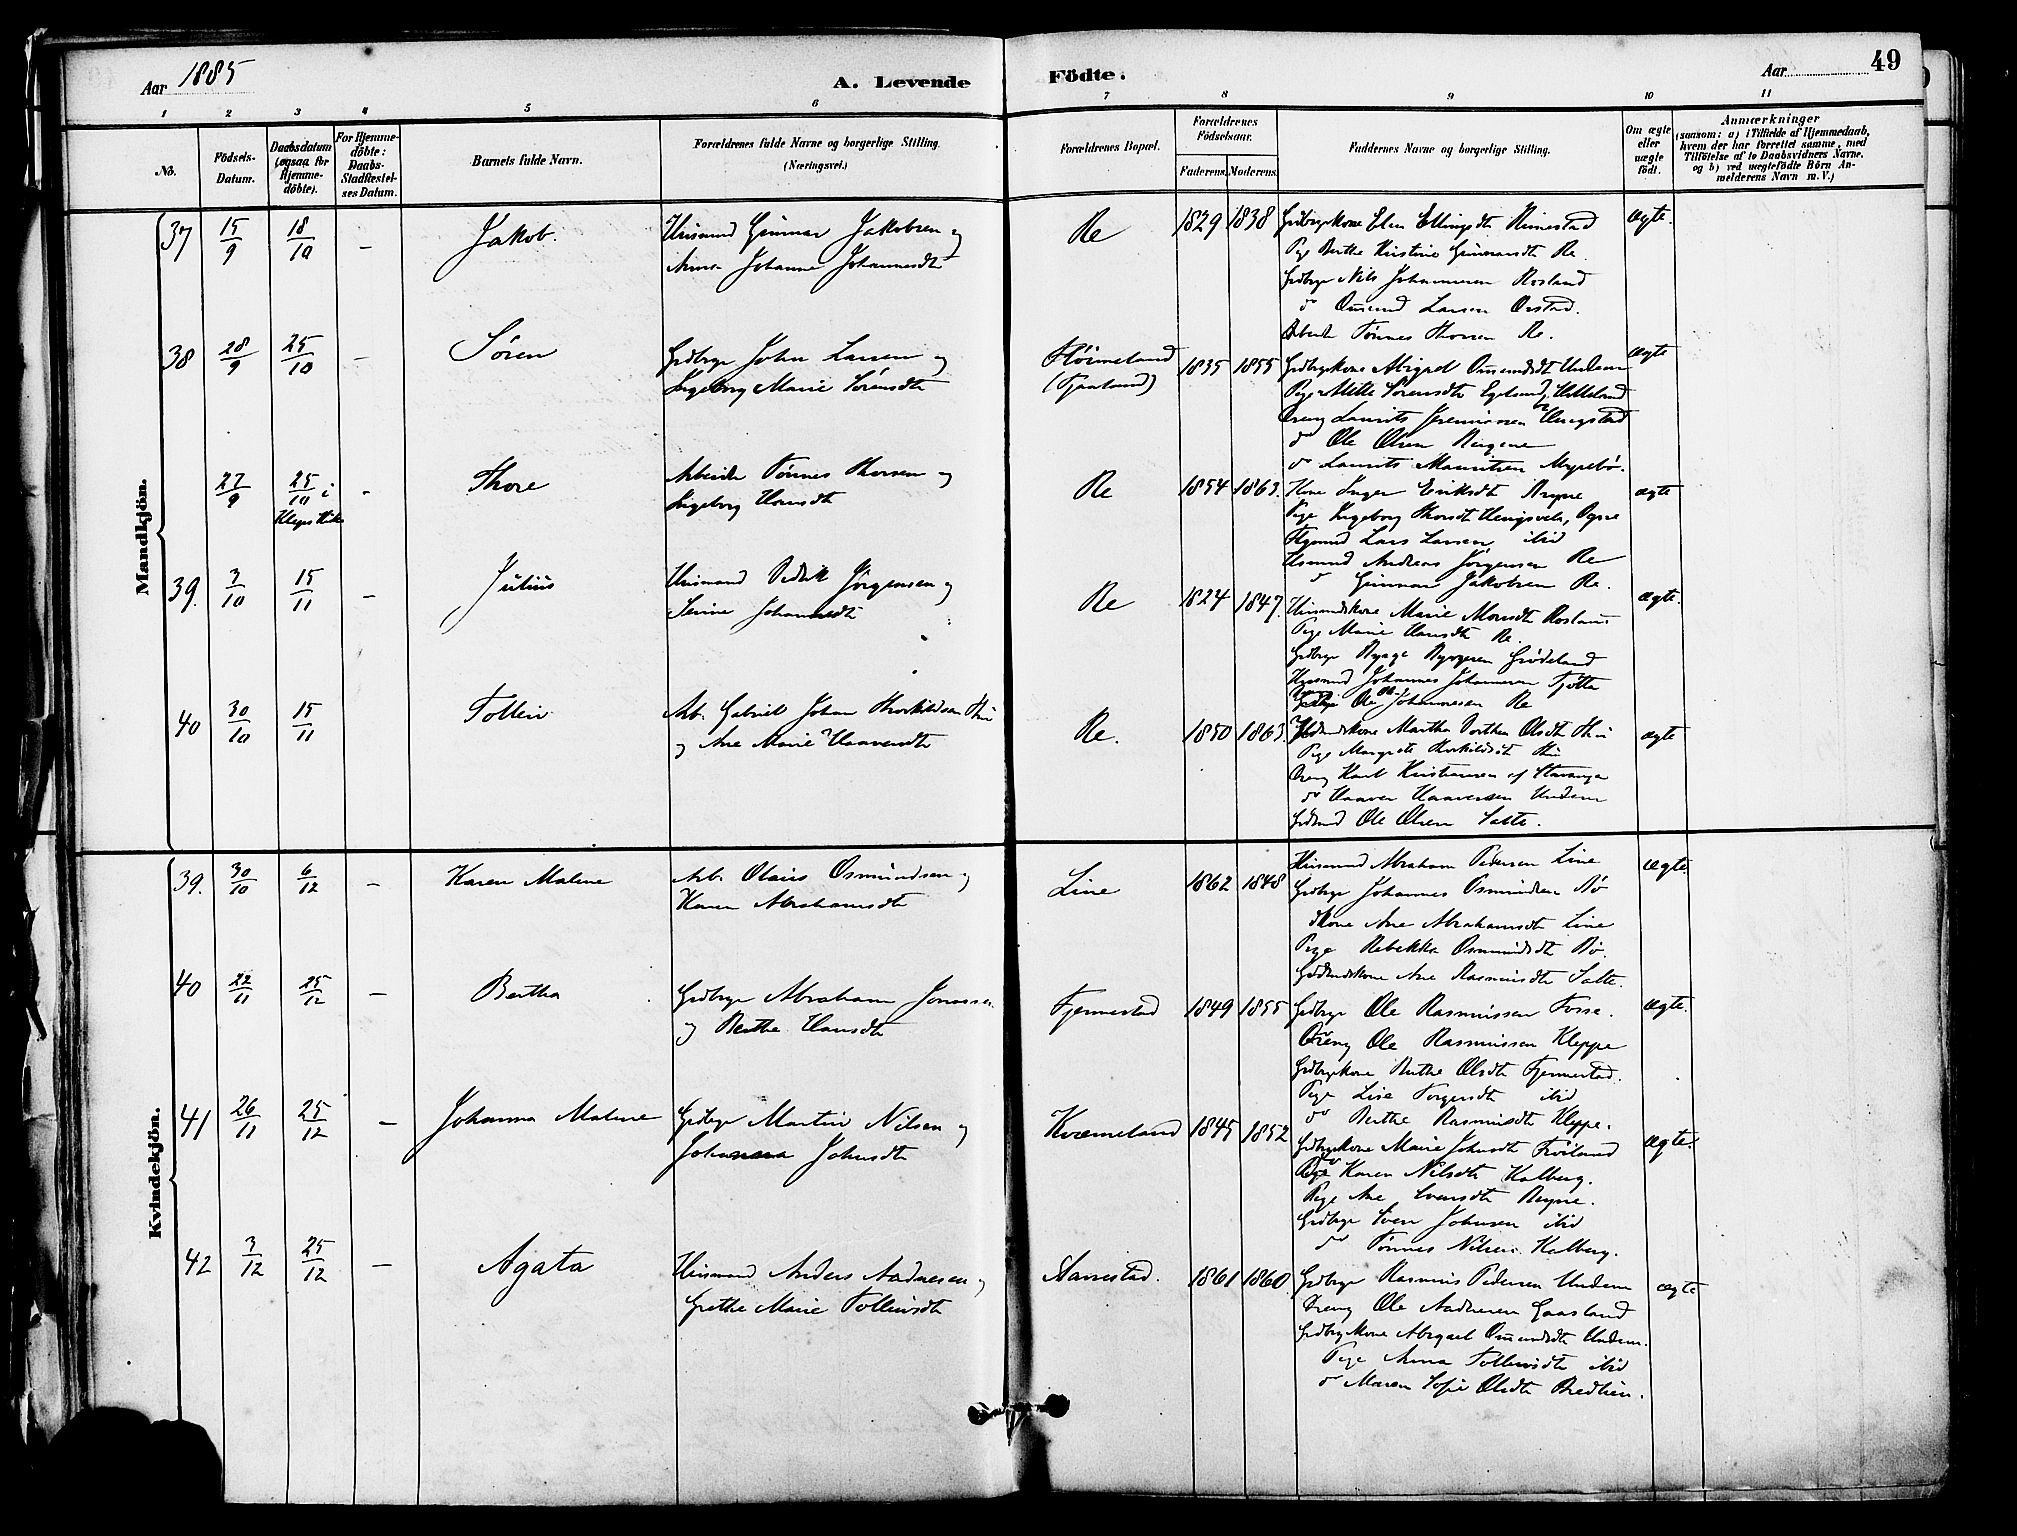 Aar 1885
A. Levende Födte.
Aar 49
1 2 3 4 5 6 7 8 9 10 11
No.
Födsels-Datum.
Daabsdatum (ogsaa for Hjemme-döbte).
For Hjemme-döbte: Daabs-Stadfæstel-ses Datum.
Barnets fulde Navn.
Forældrenes fulde Navne og borgerlige Stilling. (Næringsvei.)
Forældrenes Bopæl.
Forældrenes Födselsaar.
Faderens. Moderens.
Faddernes Navne og borgerlige Stilling.
Om ægte eller uægte födt.
Anmærkninger
(saasom: a) i Tilfælde af Hjemmedaab, hvem der har forrettet samme, med Tilföielse af to Daabsvidners Navne, og b) ved uægtefödte Börn An-melderens Navn m. V.)
Mandkjön.
37 15/9 18/10 – Jakob. Husmand Gunnar Jakobsen og
Anna Johanne Johannesdt
Re 1829 1838 ægte.
Grdbrgrkone Elen Ellingsdt Rimestad
Pige Berthe Kristine Gunnarsdt Re.
Grdbrgr Nils Johannesen Rosland
do Omund Larsen Orstad.
Arbeid Tønnes Thorsen Re.
38 28/9 25/10 – Søren Grdbrgr John Larsen og
Ingeborg Marie Sørensdt
(Tjaaland) 1835 1855 ægte
Grdbrgrkone Abigael Omundsdt Undem
Pige Mette Sørensdt Egelund, Helleland
Dreng Laurits Ungstad
do Ole Olsen Ringene
do Laurits Mauritsen Myrebø.
27/9 25/10 i Klepp Kirke – Thore Arbeider Tønnes Thorsen og
Ingeborg Hansdt
Re 1854 1863. ægte
Kone Inger Eriksdt Bryne
Pige Ingeborg Thorsdt
Lars Larsen ibid
Husmand Andreas Jørgensen Re
do Gunnar Jakobsen Re.
39. 3/10 15/11 – Julius Husmand Didrik Jørgensen og
Serine Johannesdt
Re 1824 1847. ægte.
Husmandskone Marie Monsdt Rosland
Pige Marie Hansdt Re.
Grdbrgr Bryngeson Grødeland
Husmand Johannes Johannesen Tjøtta
Ole Johannesen Re
40 30/10 15/11 Tollein Arb. Gabriel Johan Thorkildsen Thu
og Ane Marie Haaversdt
Re. 1850 1863. ægte
Martha Dorthea Olsdt Thu
Pige Margrete Thorkildsdt Thu
Dreng Karl Kristiansen af Stavanger
do Haaver Haaversen Undem
Ole Olsen Salte.
Kvindekjön.
39. 30/10 6/12 – Karen Malene Arb. Olaus Osmundsen og
Karen Abrahamsdt
Line 1862 1848 ægte.
Husmand Abraham Pedersen Line
Grdbrgr Johannes Osmundsen Bø
Kone Ane Abrahamsdt Line
Pige Rebekka Osmundsdt Bø.
Ane Rasmusdt Salte.
40 22/11 25/12 – Bertha Grdbrgr Abraham Jonassen
og Berthe Hansdt
Fjermestad 1849 1855 ægte.
Grdbrgr Ole Rasmussen Fosse.
Dreng Ole Rasmussen Kleppe
Grdbrgrkone Berthe Olsdt Fjermestad.
Pige Lise Torgersdt ibid
do Berthe Rasmusdt Kleppe.
41 26/11 25/12 – Johanna Malene Grdbrgr Martin Nilsen og
Johanna Johnsdt
Kværneland 1845 1852 ægte.
Grdbrgrkone Marie Johnsdt Frøiland
Karen Nilsdt Kalberg.
Pige Ane Svensdt Bryne.
Grdbrgr Sven Johnsen ibid
do Tønnes Nilsen Kalberg.
42 3/12 25/12 – Agata Husmand Anders Aadnesen og
Grethe Marie Tolleivsdt
Aarrestad. 1861 1860 ægte
Grdbrgr Rasmus Pedersen Undem
Dreng Ole Aadnesen Gaasland
Grdbrgrkone Abigael Omundsdt Undem.
Pige Anna Tolleivsdt ibid
do Maren Sofie Olsdt Bredlien.